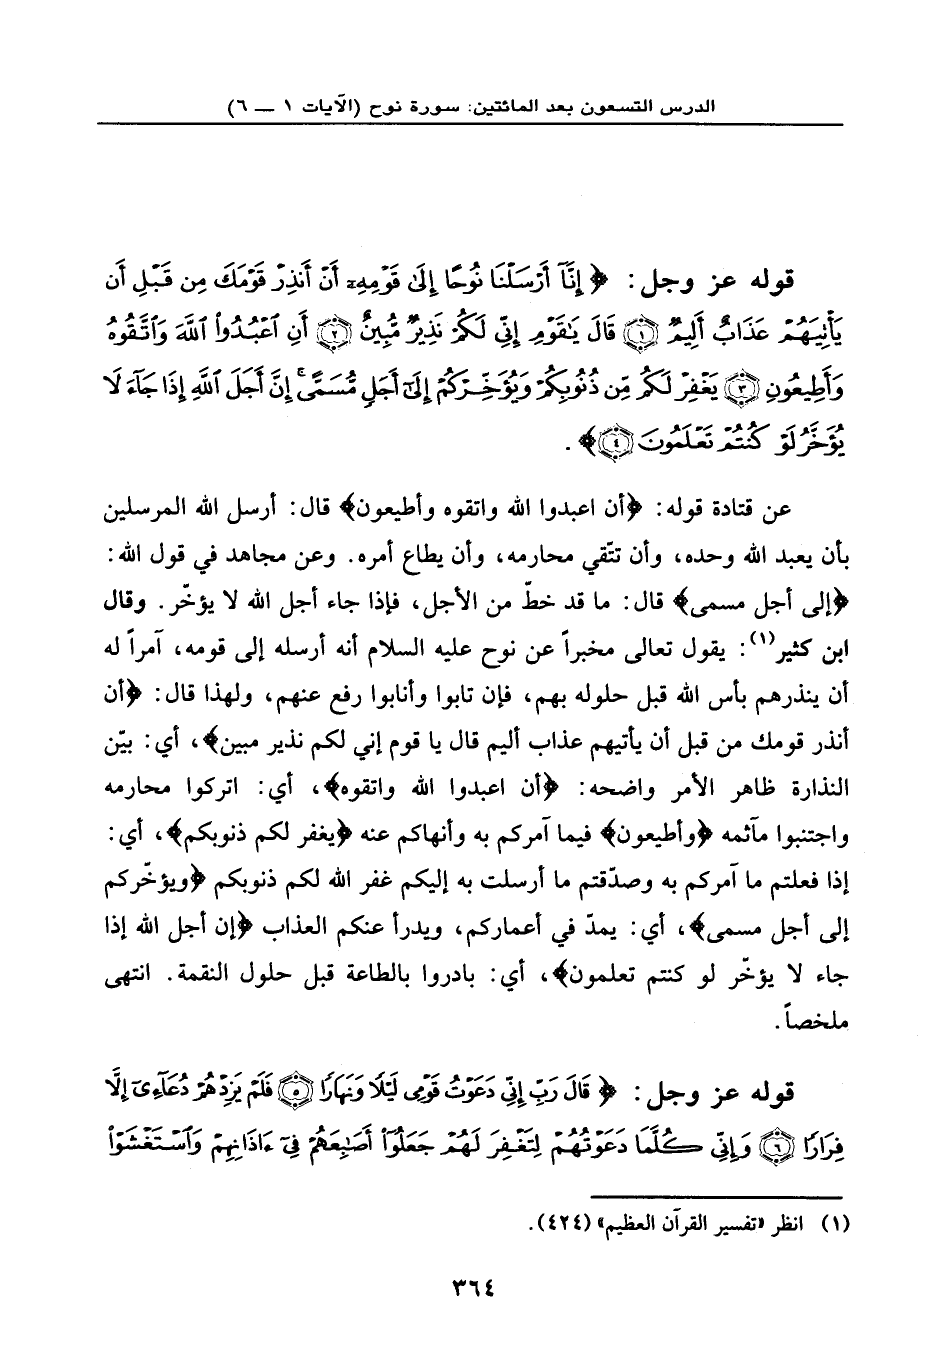 الدرس التسعون بعد المائتين: سورة نوح (الآيات ١ — ٦)
قوله عز وجل: ﴿ إِنَّآ أَرْسَلْنَا نُوحًا إِلَىٰ قَوْمِهِۦٓ أَنْ أَنذِرْ قَوْمَكَ مِن قَبْلِ أَن
يَأْتِيَهُمْ عَذَابٌ أَلِيمٌ ﴿١﴾ قَالَ يَٰقَوْمِ إِنِّى لَكُمْ نَذِيرٌ مُّبِينٌ ﴿٢﴾ أَنِ ٱعْبُدُوا۟ ٱللَّهَ وَٱتَّقُوهُ
وَأَطِيعُونِ ﴿٣﴾ يَغْفِرْ لَكُم مِّن ذُنُوبِكُمْ وَيُؤَخِّرْكُمْ إِلَىٰٓ أَجَلٍ مُّسَمًّى ۚ إِنَّ أَجَلَ ٱللَّهِ إِذَا جَآءَ لَا
يُؤَخَّرُ لَوْ كُنتُمْ تَعْلَمُونَ ﴿٤﴾ ﴾ .
عن قتادة قوله: ﴿أن اعبدوا الله واتقوه وأطيعون﴾ قال: أرسل الله المرسلين
بأن يعبد الله وحده، وأن تتّقي محارمه، وأن يطاع أمره. وعن مجاهد في قول الله:
﴿إلى أجل مسمى﴾ قال: ما قد خطّ من الأجل، فإذا جاء أجل الله لا يؤخّر. وقال
ابن كثير(١): يقول تعالى مخبراً عن نوح عليه السلام أنه أرسله إلى قومه، آمراً له
أن ينذرهم بأس الله قبل حلوله بهم، فإن تابوا وأنابوا رفع عنهم، ولهذا قال: ﴿أن
أنذر قومك من قبل أن يأتيهم عذاب أليم قال يا قوم إني لكم نذير مبين﴾، أي: بيّن
النذارة ظاهر الأمر واضحه: ﴿أن اعبدوا الله واتقوه﴾، أي: اتركوا محارمه
واجتنبوا مآثمه ﴿وأطيعون﴾ فيما آمركم به وأنهاكم عنه ﴿يغفر لكم ذنوبكم﴾، أي:
إذا فعلتم ما آمركم به وصدّقتم ما أرسلت به إليكم غفر الله لكم ذنوبكم ﴿ويؤخّركم
إلى أجل مسمى﴾، أي: يمدّ في أعماركم، ويدرأ عنكم العذاب ﴿إن أجل الله إذا
جاء لا يؤخّر لو كنتم تعلمون﴾، أي: بادروا بالطاعة قبل حلول النقمة. انتهى
ملخصاً.
قوله عز وجل: ﴿ قَالَ رَبِّ إِنِّى دَعَوْتُ قَوْمِى لَيْلًا وَنَهَارًا ﴿٥﴾ فَلَمْ يَزِدْهُمْ دُعَآءِىٓ إِلَّا
فِرَارًا ﴿٦﴾ وَإِنِّى كُلَّمَا دَعَوْتُهُمْ لِتَغْفِرَ لَهُمْ جَعَلُوٓا۟ أَصَٰبِعَهُمْ فِىٓ ءَاذَانِهِمْ وَٱسْتَغْشَوْا۟
(١) انظر «تفسير القرآن العظيم» (٤٢٤).
٣٦٤